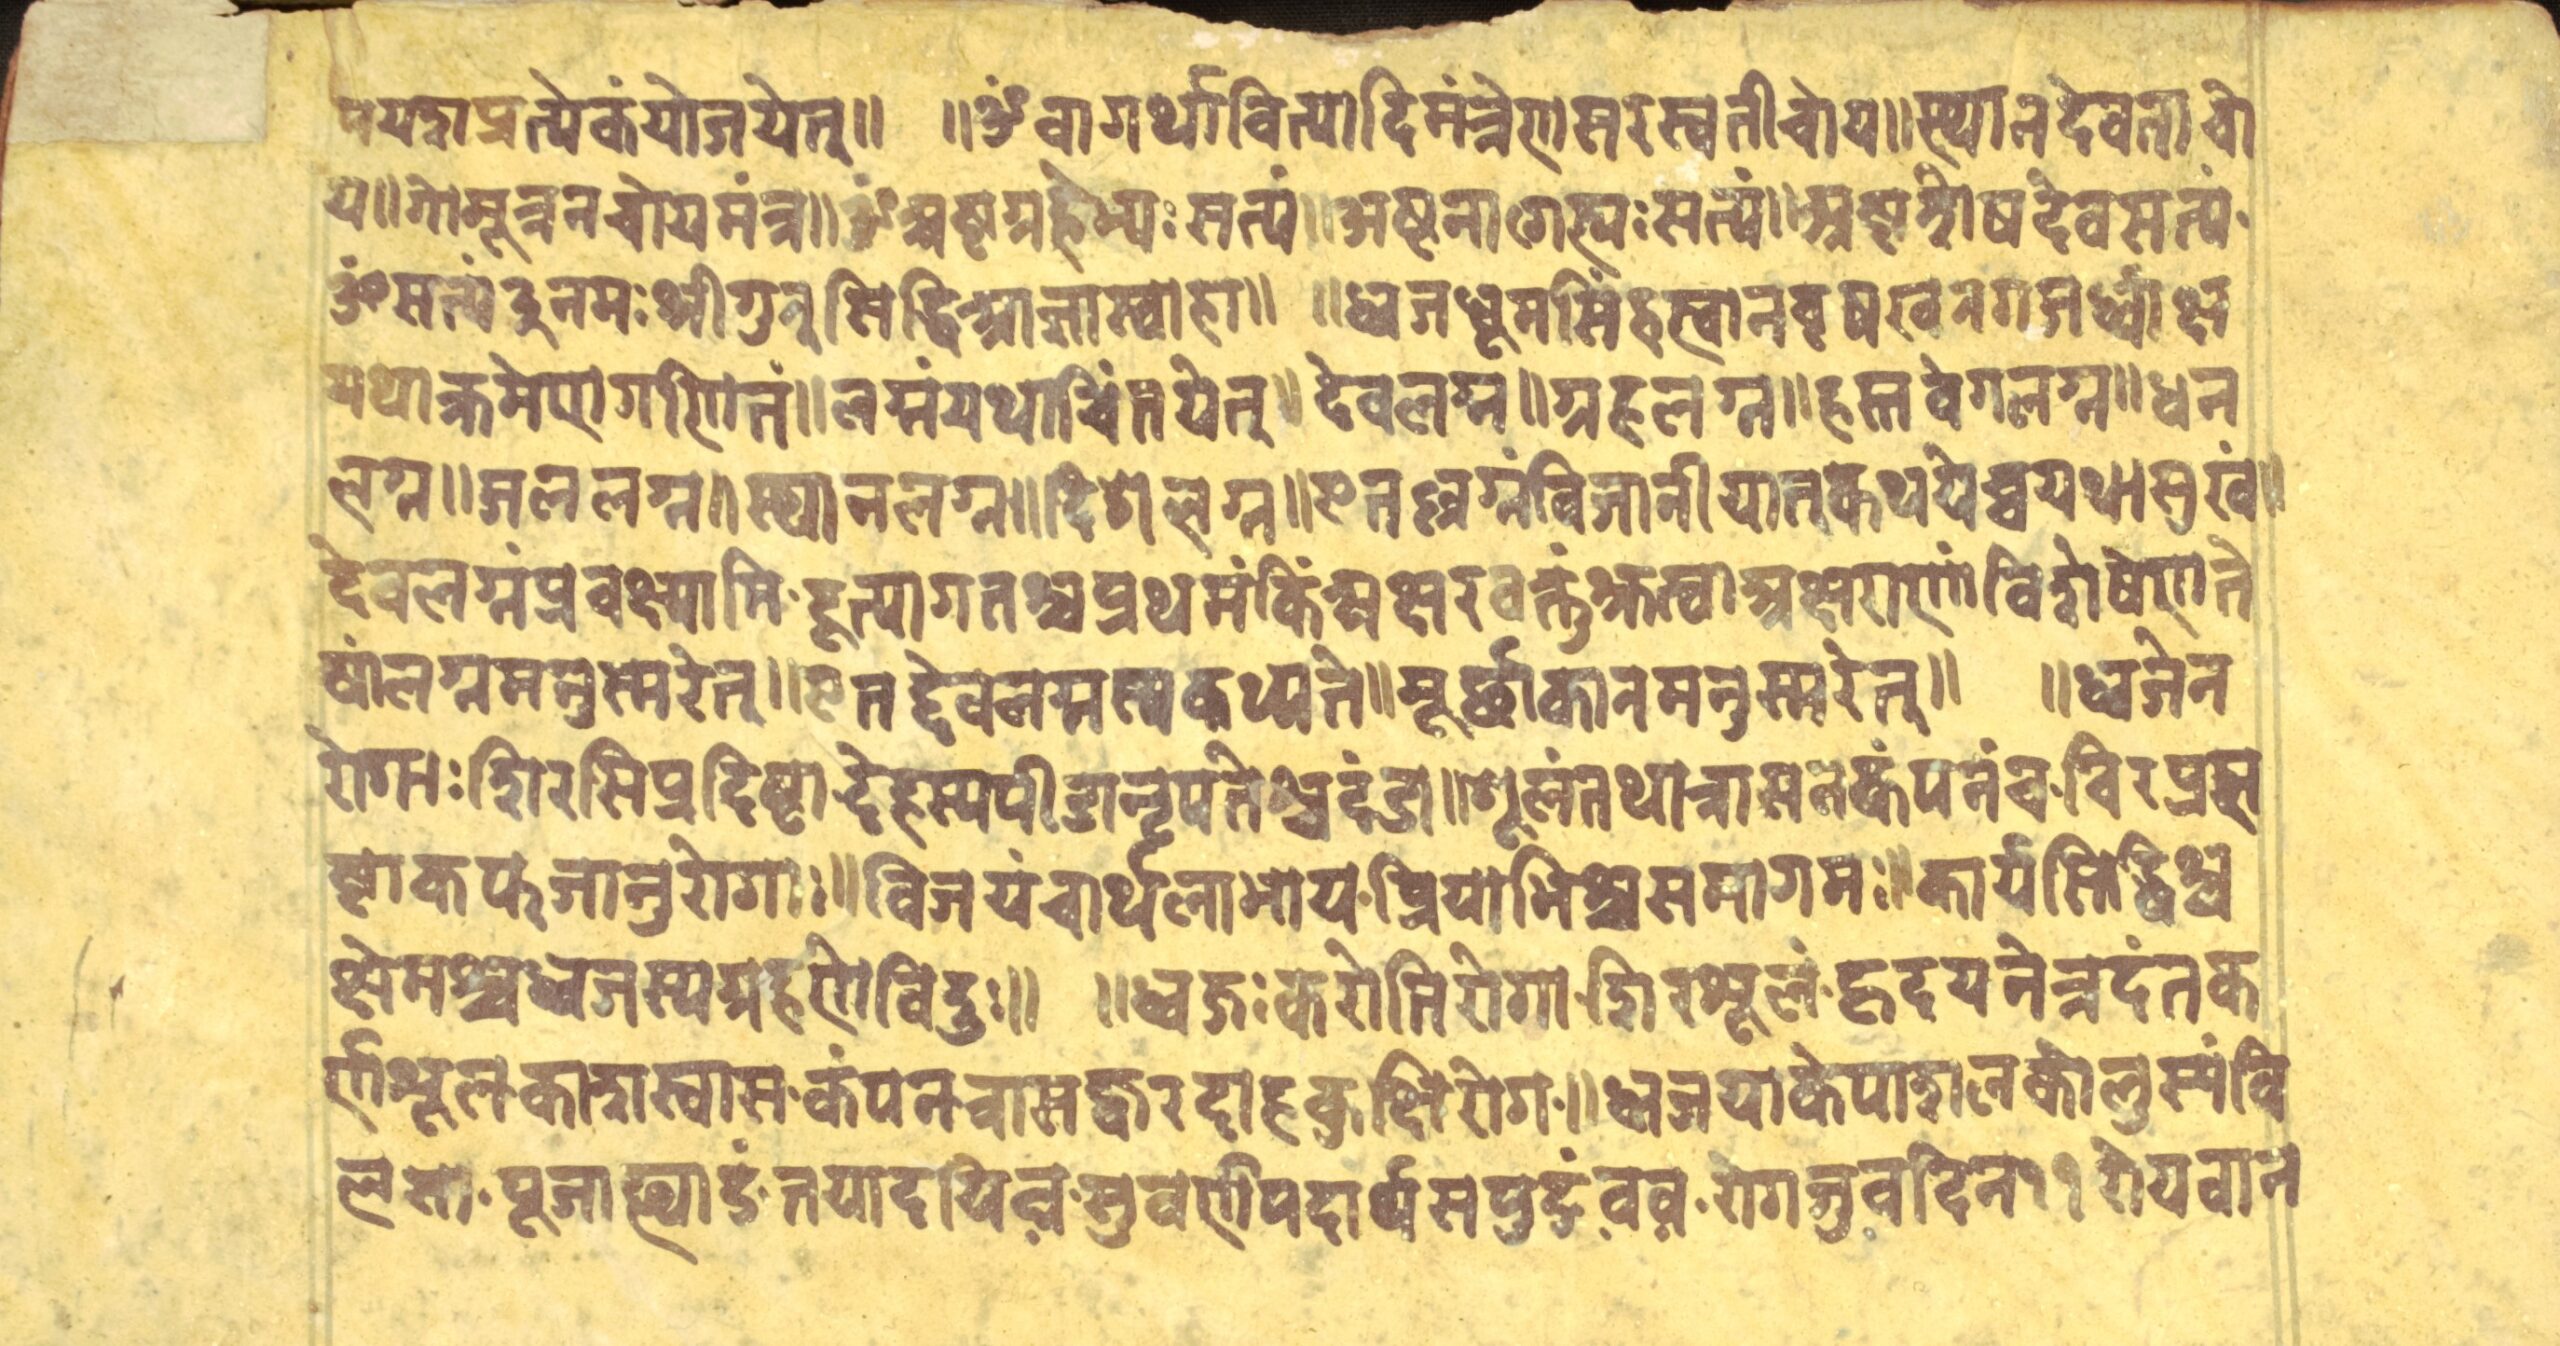 पयद्वाप्रत्येकंयोजयेत्॥ ॥ॐवागर्थावित्यादिमंत्रेणसरस्वतीचोय॥स्थानदेवताचो
य॥गोमूत्रनचोयमंत्र॥ॐअष्टग्रहेभ्यःसत्यं॥अष्टनागेभ्यःसत्यं॥
ॐसत्यंदुनमःश्रीगुरुसिद्धिआज्ञास्वाहा॥ ॥ध्वजधूमसिंहस्वानवृषखरगजर्ध्वांक्ष
यथाक्रमेणगणितं॥लग्नंयथाचिंतयेत्॥देवलग्न॥ग्रहलग्न॥हस्तवेगलग्न॥धन
लग्न॥जललग्न॥स्थानलग्न॥दिशालग्न॥एतल्लग्नंविजानीयात्कथयेच्चयथासुखं॥
देवलग्नंप्रवक्ष्यामि·दूत्यागतश्चप्रथमंकिंअक्षरवक्तुंक्रत्वाअक्षराणांविशेषेणते
षांलग्नमनुस्मरेत्॥एतद्देवलग्नस्यकथ्यते॥मूर्छाकानमनुस्मरेत्॥ ॥ध्वजेन
रोगाःशिरसिप्रदिष्टादेहस्यपीडानृपतेश्चदंडा॥शूलंतथात्रासनकंपनंच·
कफजानुरोगाः॥विजयंचार्थलाभाय·प्रियाभिश्चसमागमः॥कार्यसिद्धिश्च
क्षेमश्चध्वजस्यग्रहणेविदुः॥ ॥ध्वजःकरोतिरोगा·शिरश्शूलं·हृदयनेत्रदंतक
र्णश्शूल·काशस्वास·कंपनत्रासज्वरदाहकुक्षिरोग·॥ध्वजयाके
पूजा·सुवर्णपदार्थ·रोगजुवदिन११